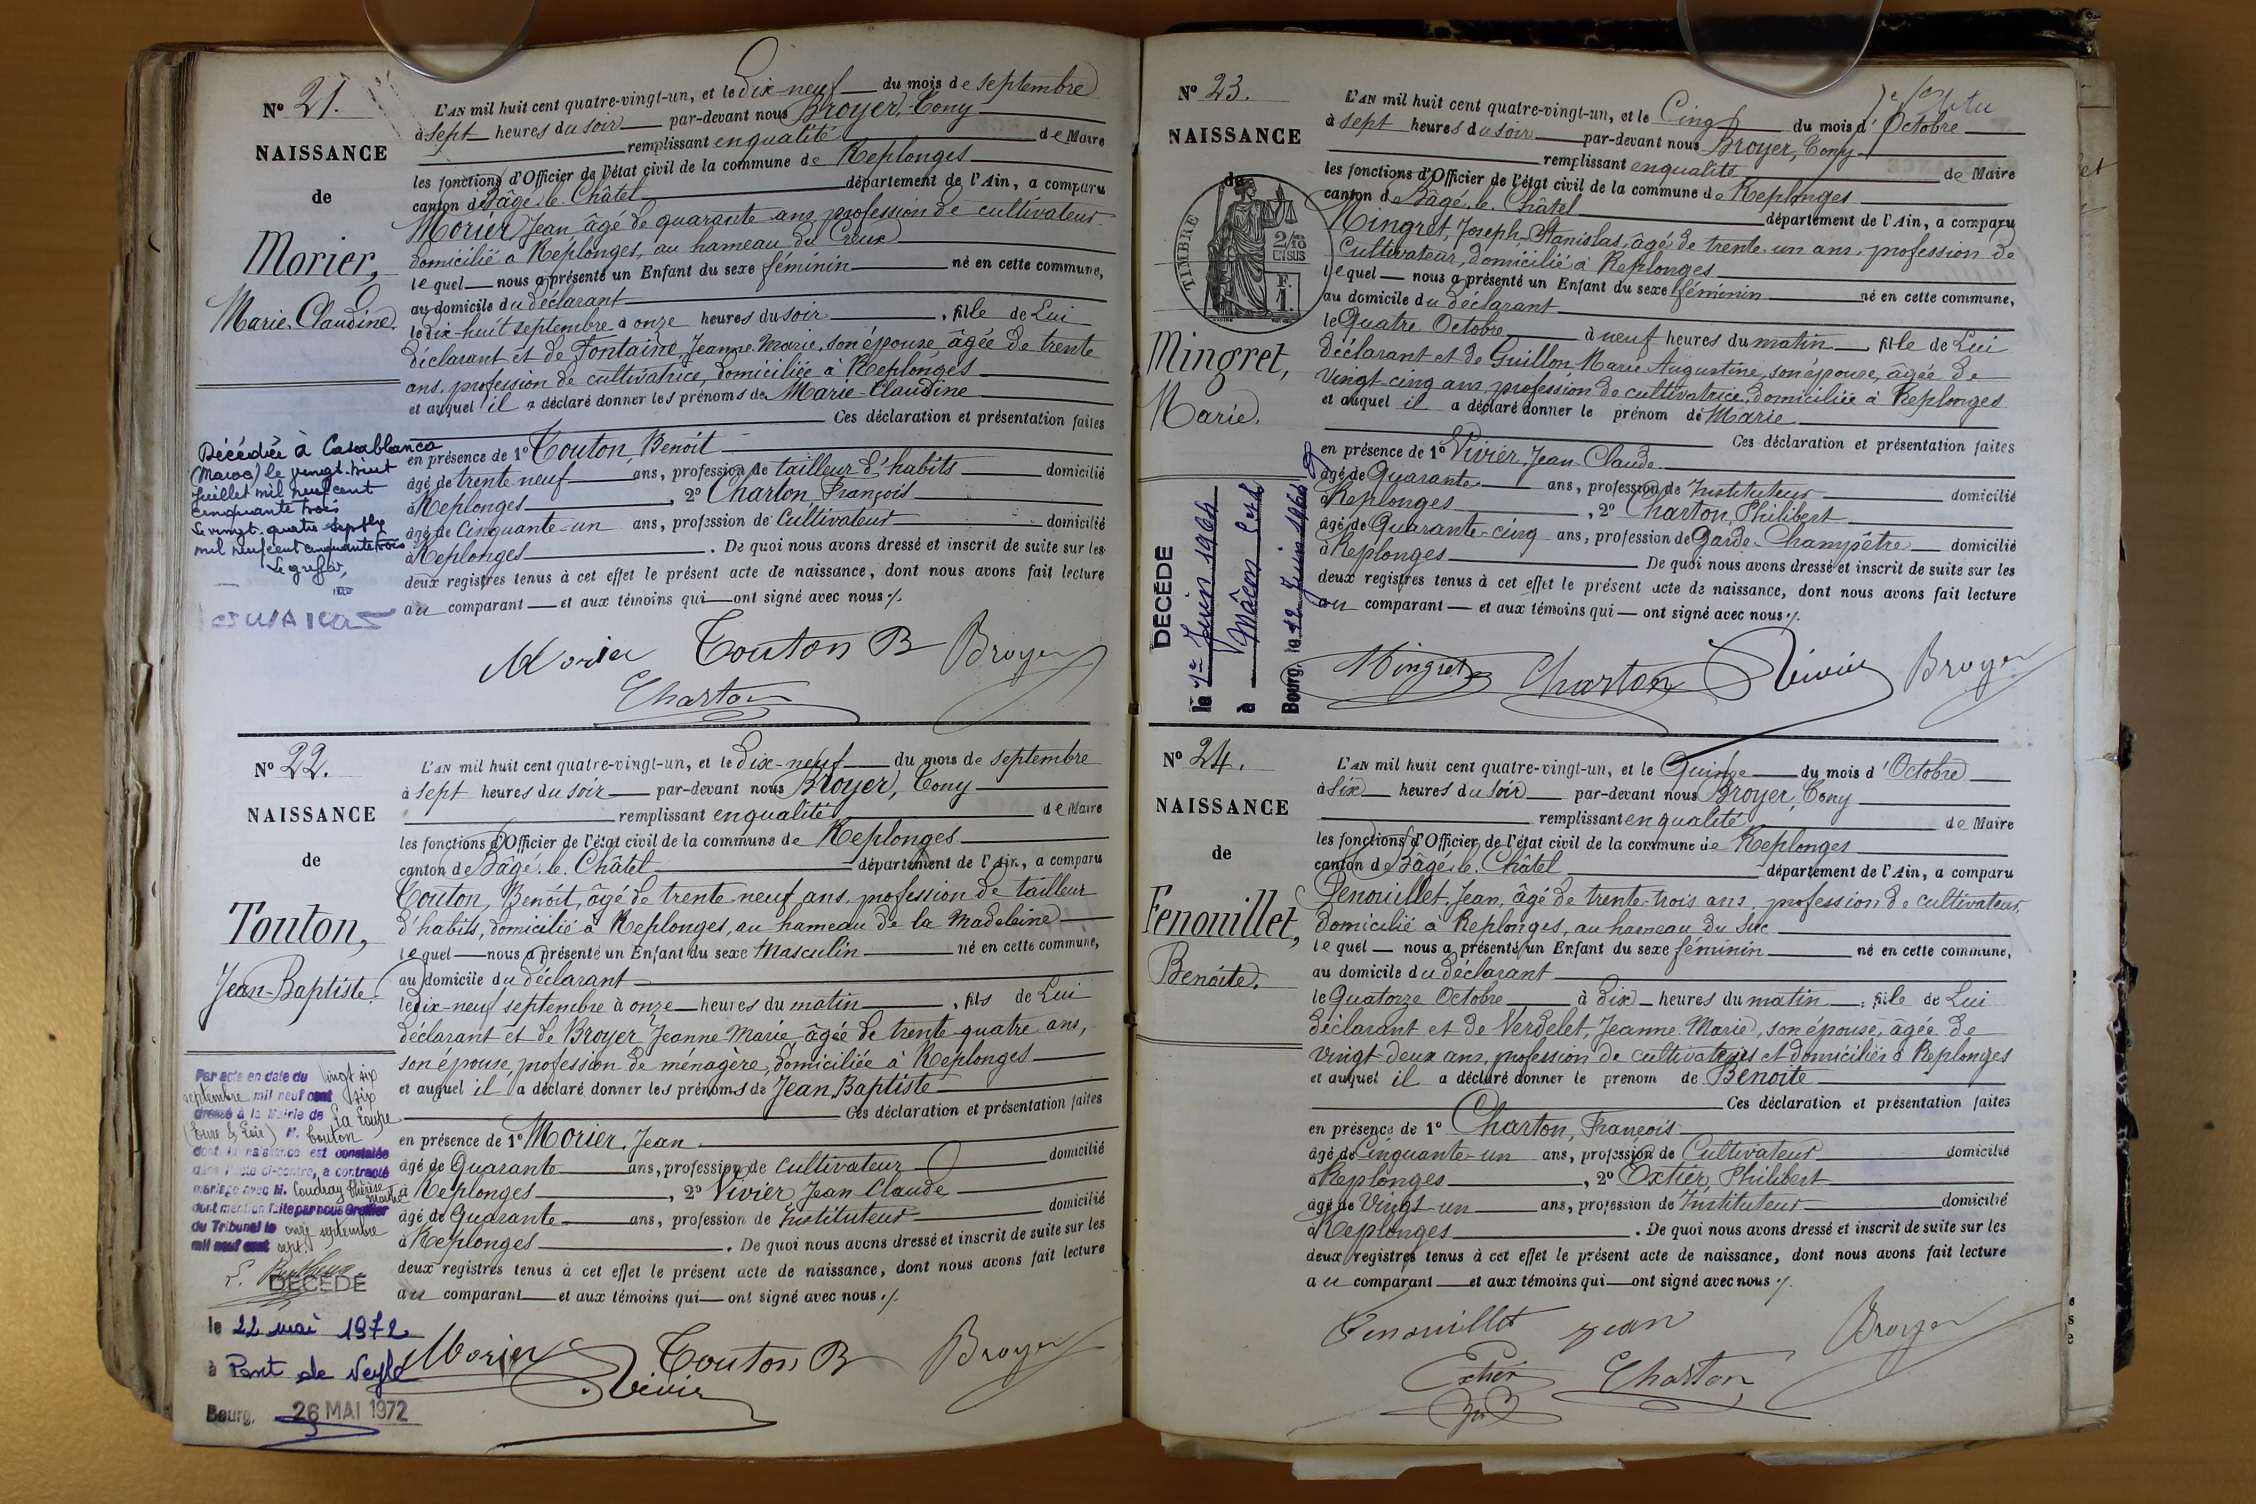 N° 21.
NAISSANCE
de
Morier,
Marie-Claudine.
L'AN mil huit cent quatre-vingt-un, et le Dix-neuf du mois de septembre
à sept heures du soir par-devant nous Broyer, Tony
remplissant en qualité de Maire
les fonctions d'Officier de l'état civil de la commune de Replonges
canton de Bâgé-le-Châtel département de l'Ain, a comparu
Morier, Jean âgé de quarante ans, profession de cultivateur
domicilié à Replonges, au hameau du Creux
lequel nous a présenté un Enfant du sexe féminin né en cette commune,
au domicile du déclarant
le dix-huit septembre à onze heures du soir, fille de Lui
déclarant et de Fontaine, Jeanne-Marie, son épouse âgée de trente
ans, profession de cultivatrice, domiciliée à Replonges
et auquel il a déclaré donner les prénoms de Marie-Claudine
Ces déclaration et présentation faites
en présence de 1° Touton, Benoit
âgé de trente neuf ans, profession de tailleur d'habits domicilié
à Replonges, 2° Charton, François
âgé de Cinquante-un ans, profession de Cultivateur domicilié
à Replonges. De quoi nous avons dressé et inscrit de suite sur les
deux registres tenus à cet effet le présent acte de naissance, dont nous avons fait lecture
au comparant et aux témoins qui ont signé avec nous ./.
Morier Touton B Broyer
Charton
Décédée à Casablanca
(Maroc) le vingt-huit
Juillet mil neuf cent
cinquante trois
Le vingt-quatre Septbre
mil neuf cent cinquante trois
Le greffier,
N° 22.
NAISSANCE
de
Touton,
Jean-Baptiste.
L'AN mil huit cent quatre-vingt-un, et le Dix-neuf du mois de septembre
à sept heures du soir par-devant nous Broyer, Tony
remplissant en qualité de Maire
les fonctions d'Officier de l'état civil de la commune de Replonges
canton de Bâgé-le-Châtel département de l'Ain, a comparu
Touton, Benoit, âgé de trente neuf ans, profession de tailleur
d'habits, domicilié à Replonges, au hameau de la Madeleine
lequel nous a présenté un Enfant du sexe Masculin né en cette commune,
au domicile du déclarant
le dix-neuf septembre à onze heures du matin, fils de Lui
déclarant et de Broyer Jeanne-Marie âgée de trente quatre ans,
son épouse, profession de ménagère, domiciliée à Replonges
et auquel il a déclaré donner les prénoms de Jean Baptiste
Ces déclaration et présentation faites
en présence de 1° Morier, Jean
âgé de Quarante ans, profession de cultivateur domicilié
à Replonges, 2° Vivier, Jean Claude
âgé de Quarante ans, profession de Instituteur domicilié
à Replonges. De quoi nous avons dressé et inscrit de suite sur les
deux registres tenus à cet effet le présent acte de naissance, dont nous avons fait lecture
au comparant et aux témoins qui ont signé avec nous ./.
Morier Touton B Broyer
Vivier
Par acte en date du vingt six
septembre mil neuf cent six
dressé à la Mairie de La Loupe
(Eure & Loir) M. Touton
dont la naissance est constatée
dans l'acte ci-contre, a contracté
mariage avec M. Coudray Thérèse
Marthe
dont mention faite par nous Greffier
du Tribunal le onze septembre
mil neuf cent sept.
DÉCÉDÉ
le 22 mai 1972
à Pont de Veyle
Bourg, 26 MAI 1972
N° 23.
NAISSANCE
de
TIMBRE
2/10 EN SUS
F. 1.
Mingret,
Marie.
L'AN mil huit cent quatre-vingt-un, et le Cinq du mois d'Octobre
à sept heures du soir par-devant nous Broyer, Tony
remplissant en qualité de Maire
les fonctions d'Officier de l'état civil de la commune de Replonges
canton de Bâgé-le-Châtel département de l'Ain, a comparu
Mingret, Joseph, Stanislas, âgé de trente-un ans, profession de
Cultivateur, domicilié à Replonges
lequel nous a présenté un Enfant du sexe féminin né en cette commune,
au domicile du déclarant
le Quatre Octobre à neuf heures du matin, fille de Lui
déclarant et de Guillon, Marie Augustine, son épouse, âgée de
vingt-cinq ans, profession de cultivatrice, domiciliée à Replonges
et auquel il a déclaré donner le prénom de Marie
Ces déclaration et présentation faites
en présence de 1° Vivier, Jean-Claude
âgé de Quarante ans, profession de Instituteur domicilié
à Replonges, 2° Charton, Philibert
âgé de Quarante-cinq ans, profession de Garde-Champêtre domicilié
à Replonges. De quoi nous avons dressé et inscrit de suite sur les
deux registres tenus à cet effet le présent acte de naissance, dont nous avons fait lecture
au comparant et aux témoins qui ont signé avec nous ./.
Mingret Charton Vivier Broyer
DÉCÉDÉ
le 1er Juin 1964
à Mâcon
Bourg, le 22 Juin
N° 24.
NAISSANCE
de
Fenouillet,
Benoite.
L'AN mil huit cent quatre-vingt-un, et le Quinze du mois d'Octobre
à six heures du soir par-devant nous Broyer, Tony
remplissant en qualité de Maire
les fonctions d'Officier de l'état civil de la commune de Replonges
canton de Bâgé-le-Châtel département de l'Ain, a comparu
Fenouillet, Jean, âgé de trente-trois ans, profession de cultivateur,
domicilié à Replonges, au hameau du Suc
lequel nous a présenté un Enfant du sexe féminin né en cette commune,
au domicile du déclarant
le Quatorze Octobre à Dix heures du matin, fille de Lui
déclarant et de Verdelet, Jeanne-Marie, son épouse, âgée de
vingt-deux ans, profession de cultivateurs et domiciliés à Replonges
et auquel il a déclaré donner le prénom de Benoite
Ces déclaration et présentation faites
en présence de 1° Charton, François
âgé de Cinquante-un ans, profession de Cultivateur domicilié
à Replonges, 2° Extier, Philibert
âgé de Vingt-un ans, profession de Instituteur domicilié
à Replonges. De quoi nous avons dressé et inscrit de suite sur les
deux registres tenus à cet effet le présent acte de naissance, dont nous avons fait lecture
au comparant et aux témoins qui ont signé avec nous ./.
Fenouillet jean Broyer
Extier Charton